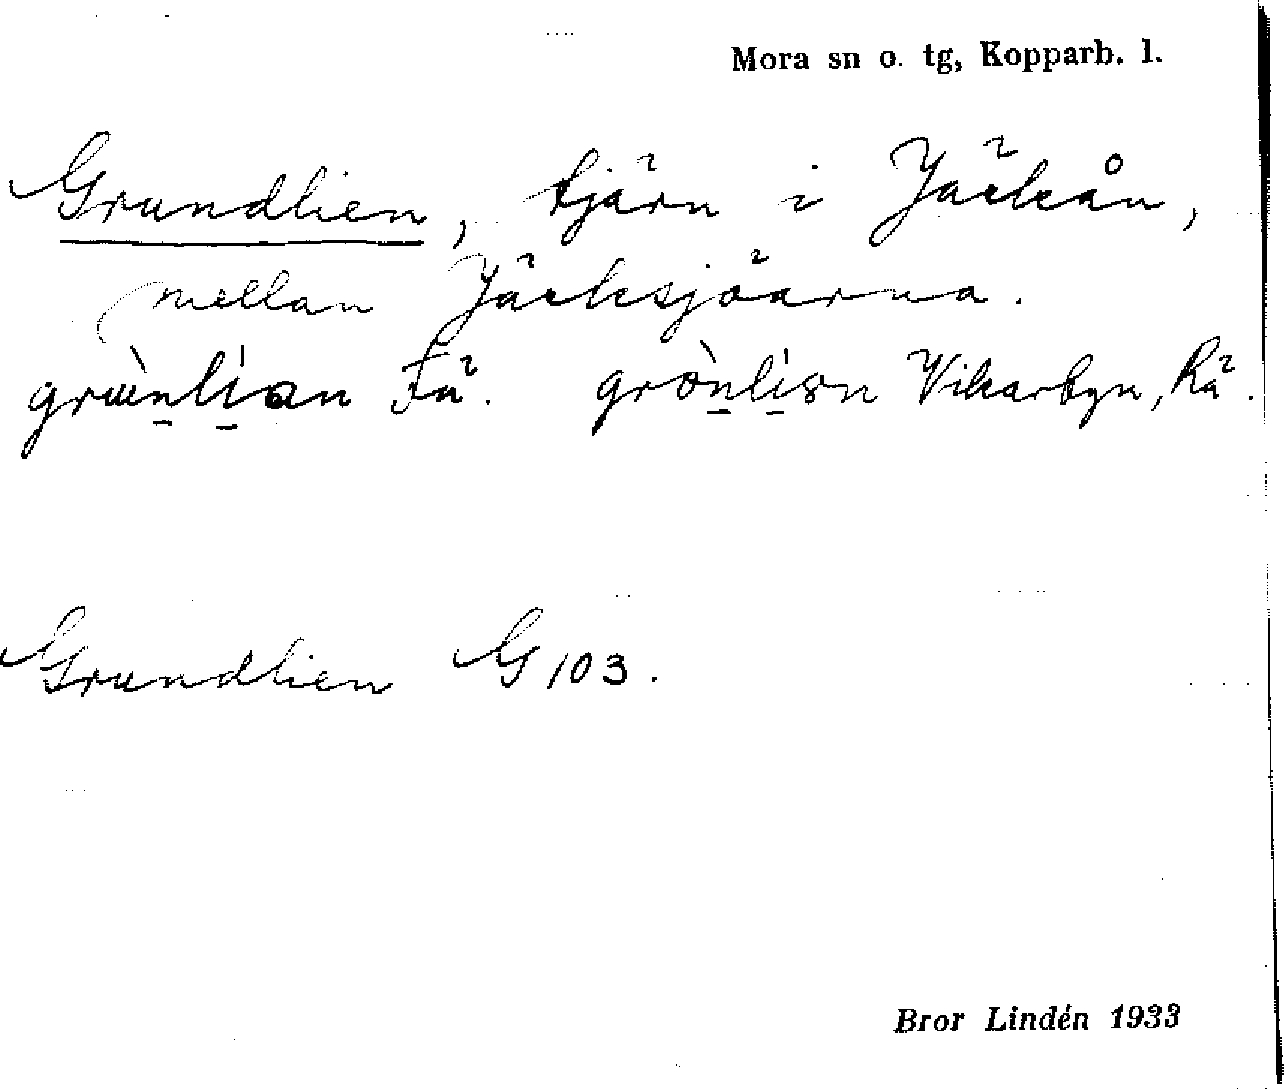 Mora sn o. tg, Kopparb. l.
Grundlien, tjärn i Jäckån,
mellan Jäcksjöarna.
Fä. Vikarbyn, Rä.
Grundlien G 103.
Bror Lindén 1933